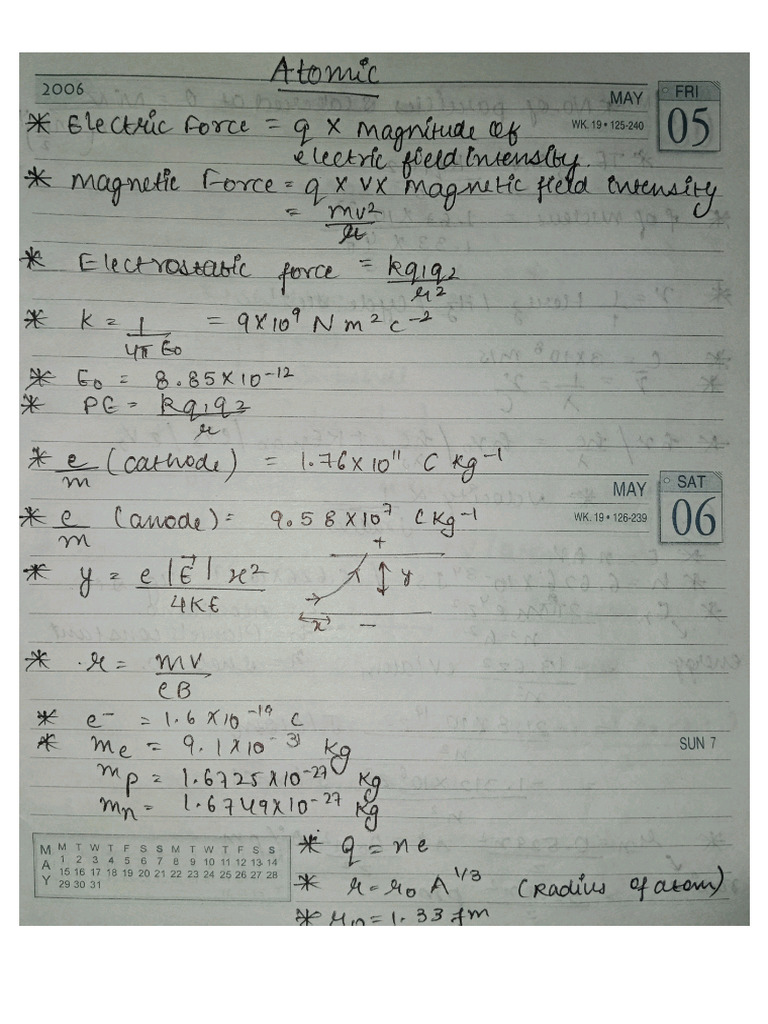 Atomic
2006
MAY
FRI
05
WK. 19 • 125-240
* Electric Force = q x magnitude of
electric field intensity.
* Magnetic Force = q x v x magnetic field intensity
= mv²/r
* Electrostatic force = kq₁q₂/r²
* K = 1/4π ε₀ = 9x10⁹ N m² c⁻²
* ε₀ = 8.85x10⁻¹²
* PE = kq₁q₂/r
* e/m (cathode) = 1.76x10¹¹ C kg⁻¹
MAY
SAT
06
WK. 19 • 126-239
* e/m (anode) = 9.58x10⁷ C kg⁻¹
* y = e|E⃗|x²/4KE
+
y
x
−
* r = mv/eB
* e⁻ = 1.6x10⁻¹⁹ C
* me = 9.1x10⁻³¹ kg
SUN 7
mp = 1.6725x10⁻²⁷ kg
mn = 1.6749x10⁻²⁷ kg
MAY
M T W T F S S M T W T F S S
1 2 3 4 5 6 7 8 9 10 11 12 13 14
15 16 17 18 19 20 21 22 23 24 25 26 27 28
29 30 31
* q = ne
* r = r₀ A^1/3 (Radius of atom)
* r₀ = 1.33 fm